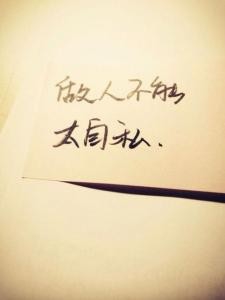 做人不能
太自私.